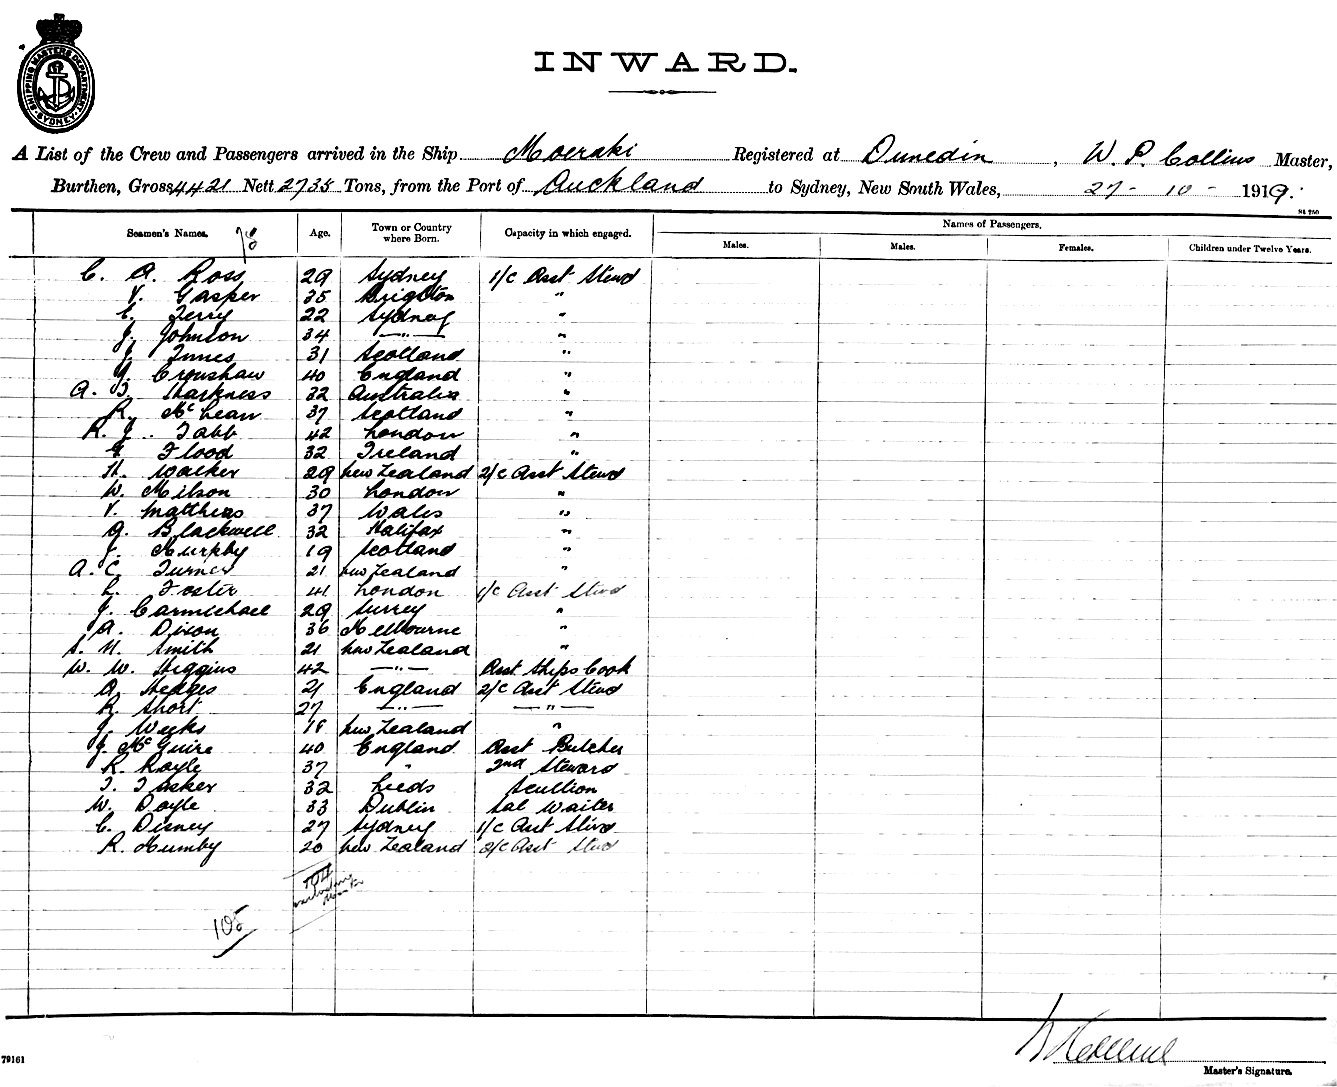 SHIPPING MASTERS DEPARTMENT SYDNEY
INWARD.
A List of the Crew and Passengers arrived in the Ship Moeraki Registered at Dunedin, W. P. Collins Master,
Burthen, Gross 4421 Nett 2735 Tons, from the Port of Auckland to Sydney, New South Wales, 27 - 10 - 1919.
St 750
Seamen's Names. 78 Age. Town or Country where Born. Capacity in which engaged. Names of Passengers.
Males. Males. Females. Children under Twelve Years.
C. A. Ross 29 Sydney 1/c Asst Stewd
V. Gasper 35 Brighton "
C. Terry 22 Sydney "
J. Johnson 34 —"— "
J. Innes 31 Scotland "
J. Cronshaw 40 England "
A. J. Harkness 32 Australia "
R. McLean 37 Scotland "
R. J. Tabb 42 London "
Flood 32 Ireland "
H. Walker 29 New Zealand 2/c Asst Stewd
W. Milson 30 London "
V. Matthias 37 Wales "
G. Blackwell 32 Halifax "
J. Murphy 19 Scotland "
A. C. Turner 21 New Zealand "
L. Foster 41 London 1/c Asst Stewd
J. Carmichael 29 Surrey "
A. Dixon 36 Melbourne "
S. N. Smith 21 New Zealand "
W. W. Higgins 42 —"— Asst Ships Cook
A. Hedges 21 England 2/c Asst Stewd
R. Short 27 —"— —"—
J. Weeks 18 New Zealand "
J. McGuire 40 England Asst Butcher
R. Royle 37 " 2nd Steward
T. Tasker 32 Leeds Scullion
W. Doyle 33 Dublin Sal Waiter
C. Disney 27 Sydney 1/c Asst Stewd
R. Humby 20 New Zealand 2/c Asst Stewd
104
105
79161
Master's Signature.